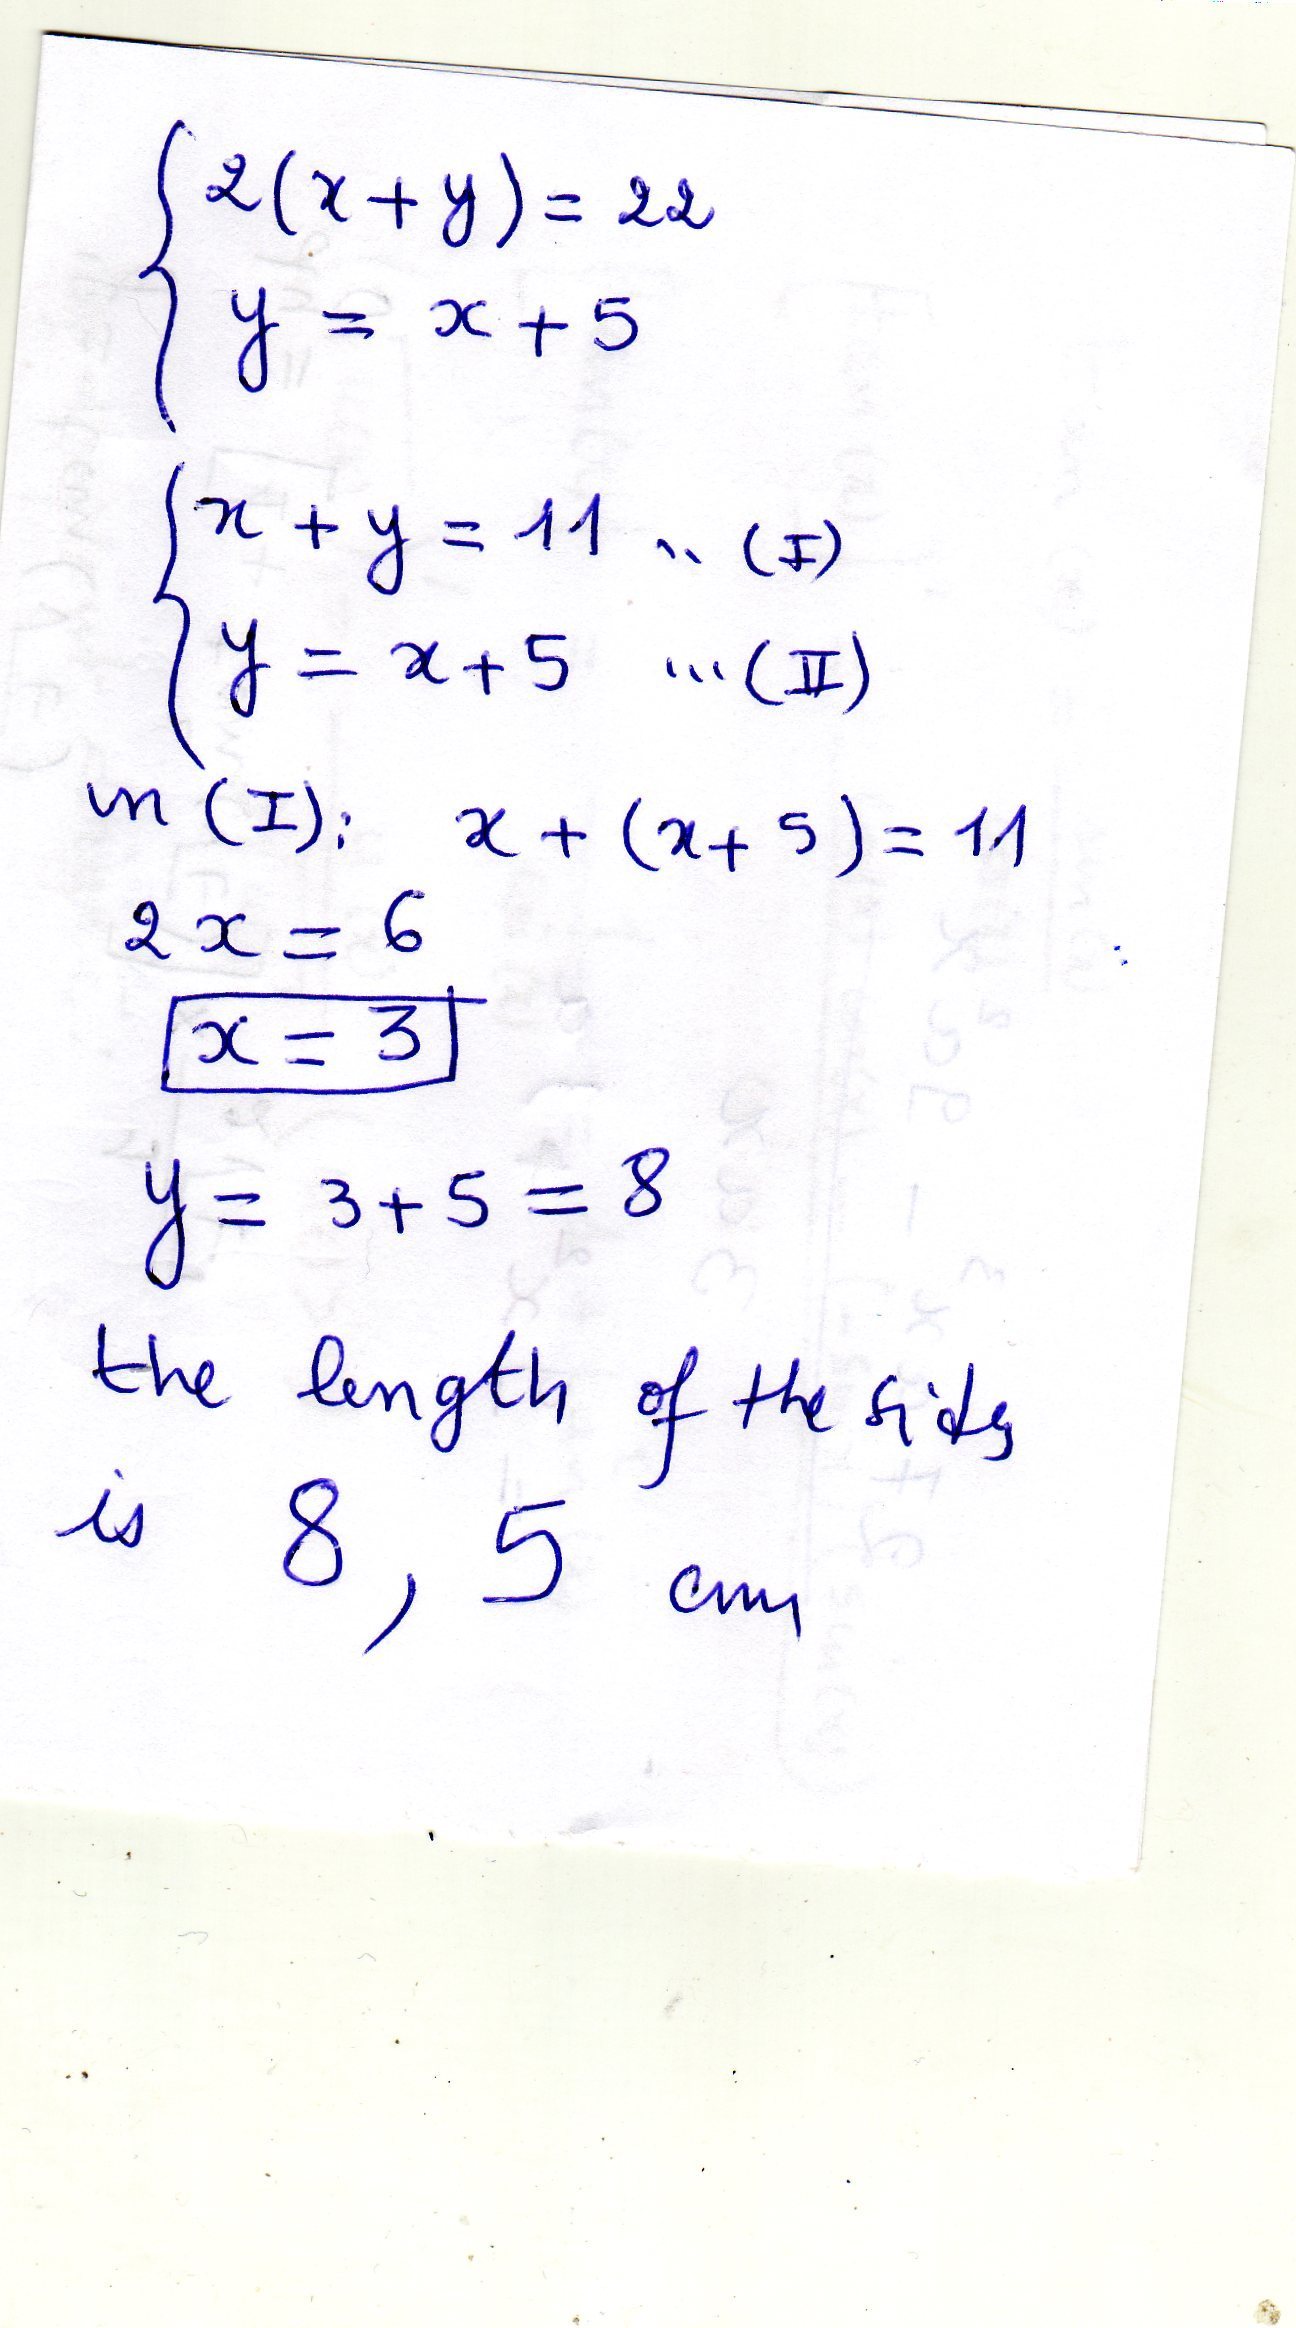 2(x+y) = 22
y = x+5
x + y = 11 .. (I)
y = x+5 ...(II)
in (I): x + (x+5) = 11
2x = 6
x = 3
y = 3+5 = 8
the length of the sides
is 8, 5 cm